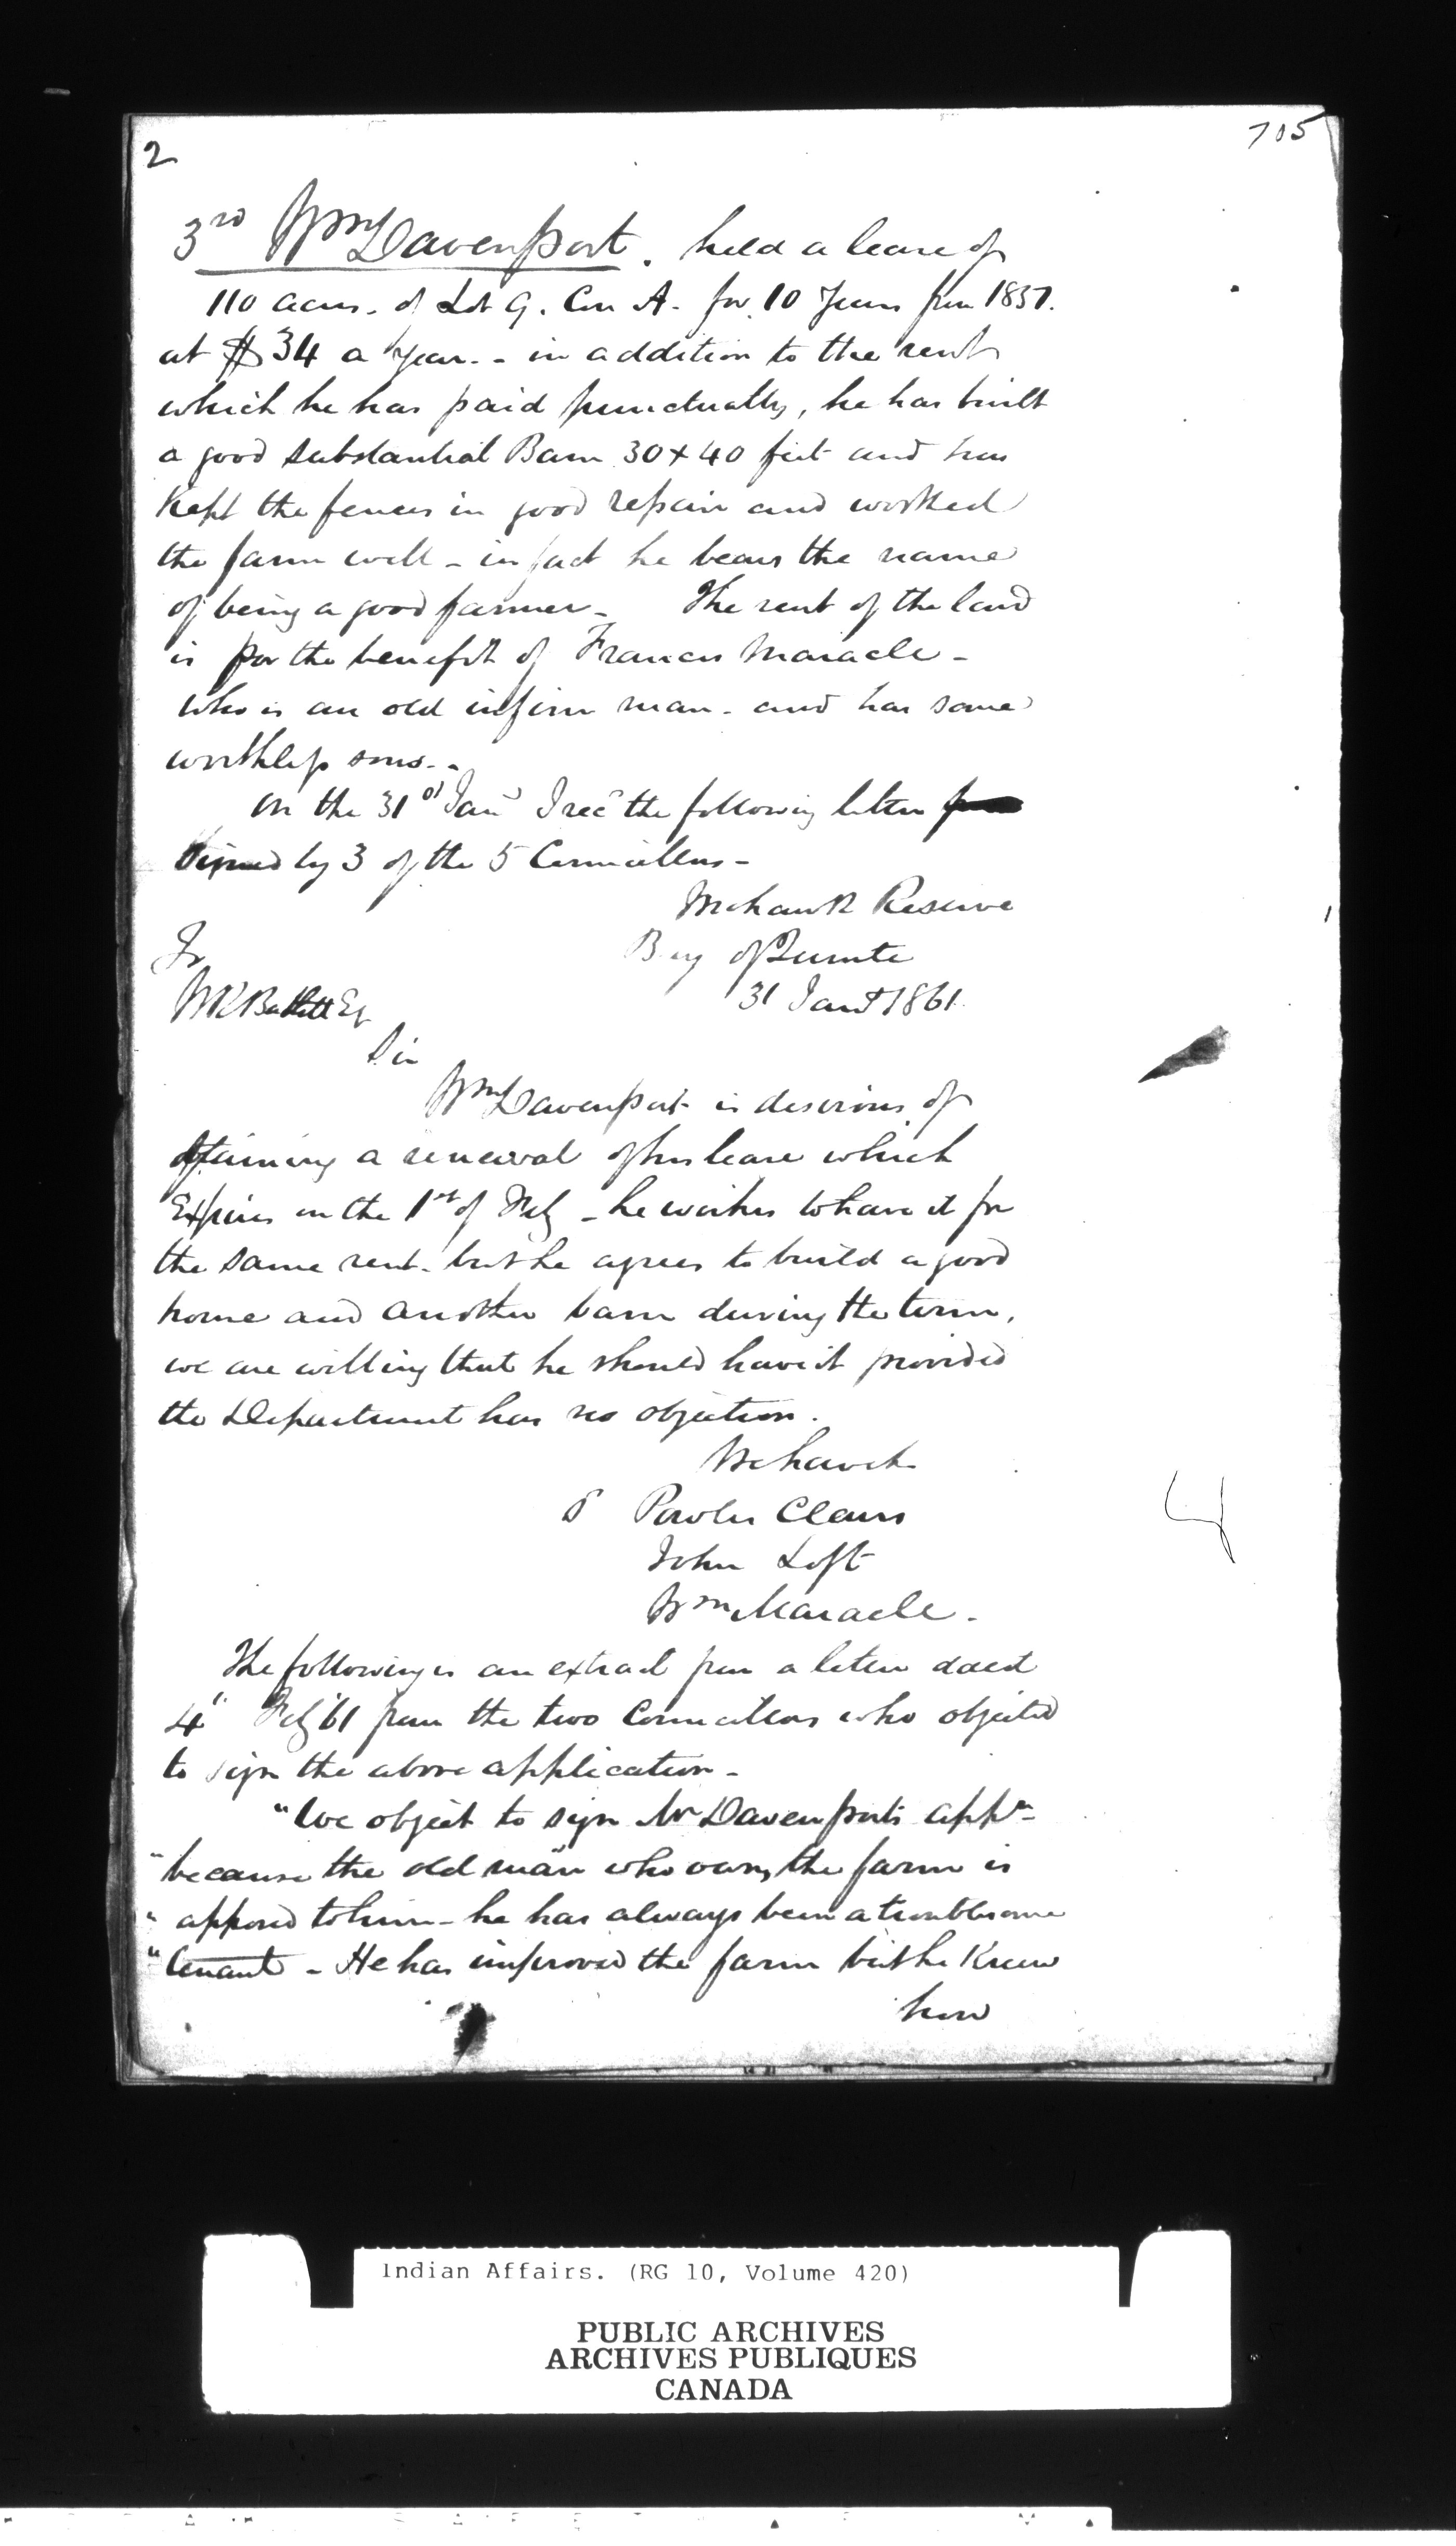 2
705
3rd Wm Davenport. held a lease of
110 acres. of Lot G. Con A. for 10 Years from 1851.
at $34 a year. - in addition to the rent
which he has paid punctually, he has built
a good substantial Barn 30 x 40 feet and has
Kept the fences in good repair and worked
the farm well - in fact he bears the name
of being a good farmer - The rent of the land
is for the benefit of Francis Maracle -
who is an old infirm man - and has some
worthless sons. -
On the 31st Jany I recd the following letter
signed by 3 of the 5 Councillors -
Mohawk Reserve
Bay of Quinte
31 Jany 1861
To
W R Bartlett Esq
Sir
Wm Davenport is desirous of
obtaining a renewal of his lease which
Expires on the 1st of Feby - he wishes to have it for
the same rent - but he agrees to build a good
house and another barn during the term,
we are willing that he should have it provided
the Department has no objection.
Mohawk
S Powles Claus
John Loft
Wm Maracle.
The following is an extract from a letter dated
4" Feby 61 from the two Councillors who objected
to sign the above application -
"We object to sign Mr Davenports appn
"because the old man who owns the farm is
"opposed to him - he has always been a troublesome
"tenant - He has improved the farm but he Knew
how
4
Indian Affairs. (RG 10, Volume 420)
PUBLIC ARCHIVES
ARCHIVES PUBLIQUES
CANADA